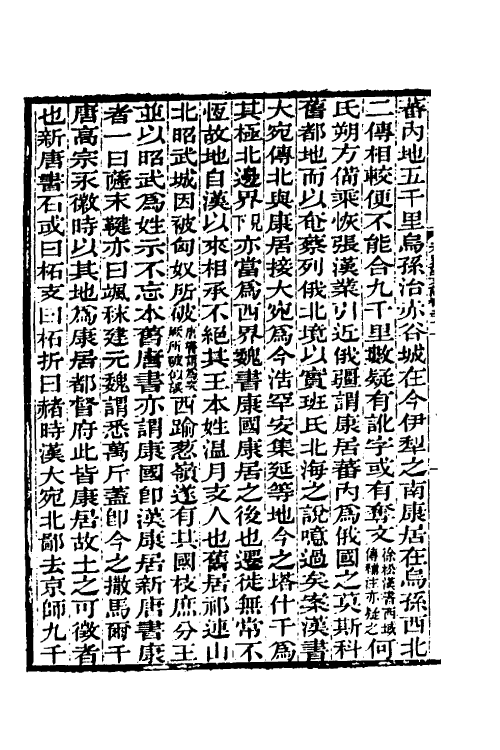 蕃內地五千里烏孫治赤谷城在今伊犁之南康居在烏孫西北
二傳相較便不能合九千里數疑有訛字或有奪文徐松漢書西域傳補注亦疑之何
氏朔方備乘恢張漢業引近俄疆謂康居蕃內為俄國之莫斯科
舊都地而以奄蔡列俄北境以實班氏北海之說噫過矣案漢書
大宛傳北與康居接大宛為今浩罕安集延等地今之塔什干為
其極北邊界亦當為西界魏書康國康居之後也遷徙無常不
恆故地自漢以來相承不絕其王本姓溫月支人也舊居祁連山
北昭武城因被匈奴所破西踰蔥嶺遂有其國枝庶分王
並以昭武為姓示不忘本舊唐書亦謂康國即漢康居新唐書康
者一曰薩末鞬亦曰颯秣建元魏謂悉萬斤蓋即今之撒馬爾干
唐高宗永徽時以其地為康居都督府此皆康居故土之可徵者
也新唐書石或曰柘支曰柘折曰赭時漢大宛北鄙去京師九千